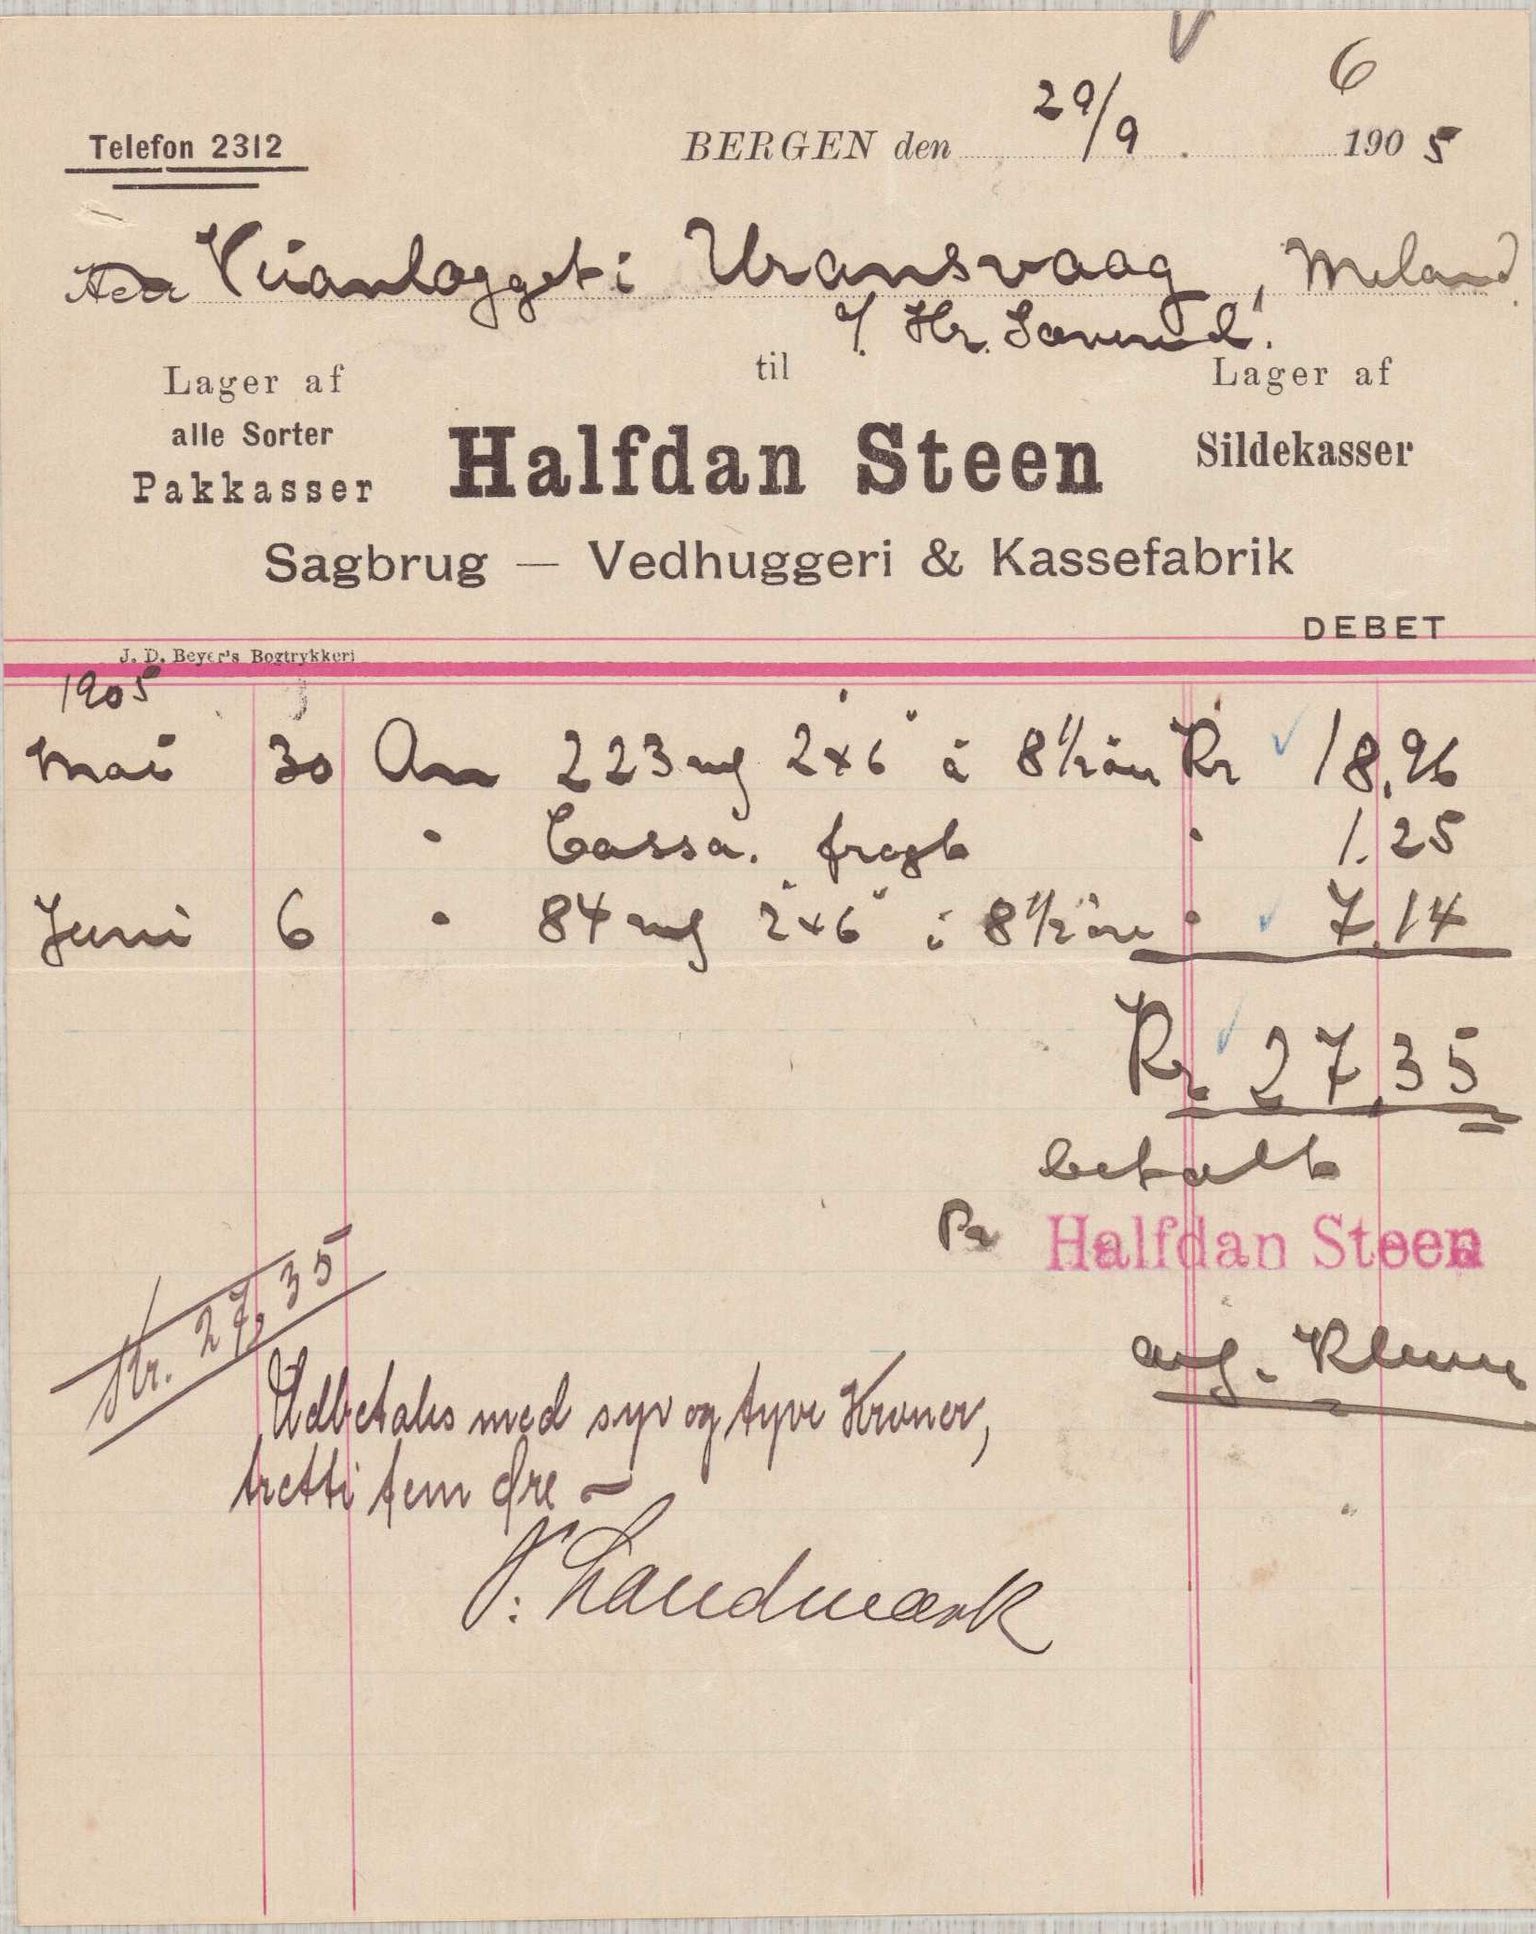 6
Telefon 2312
BERGEN den 29/9 1905
Herr Veianlægget i Uransvaag, Meland
v/ Hr. Sørensd.
til
Lager af alle Sorter Pakkasser
Halfdan Steen
Lager af Sildekasser
Sagbrug — Vedhuggeri & Kassefabrik
DEBET
J. D. Beyer's Bogtrykkeri
1905
Mai 30 An 223 mf 2×6" à 8 1/2 øre Kr 18,96
" Cassa. fragt " 1.25
Juni 6 " 84 mf 2"×6" à 8 1/2 øre " 7.14
Kr. 27,35
betalt
Pr Halfdan Steen
Kr. 27,35
Udbetales med syv og tyve Kroner,
tretti fem øre —
Landmark